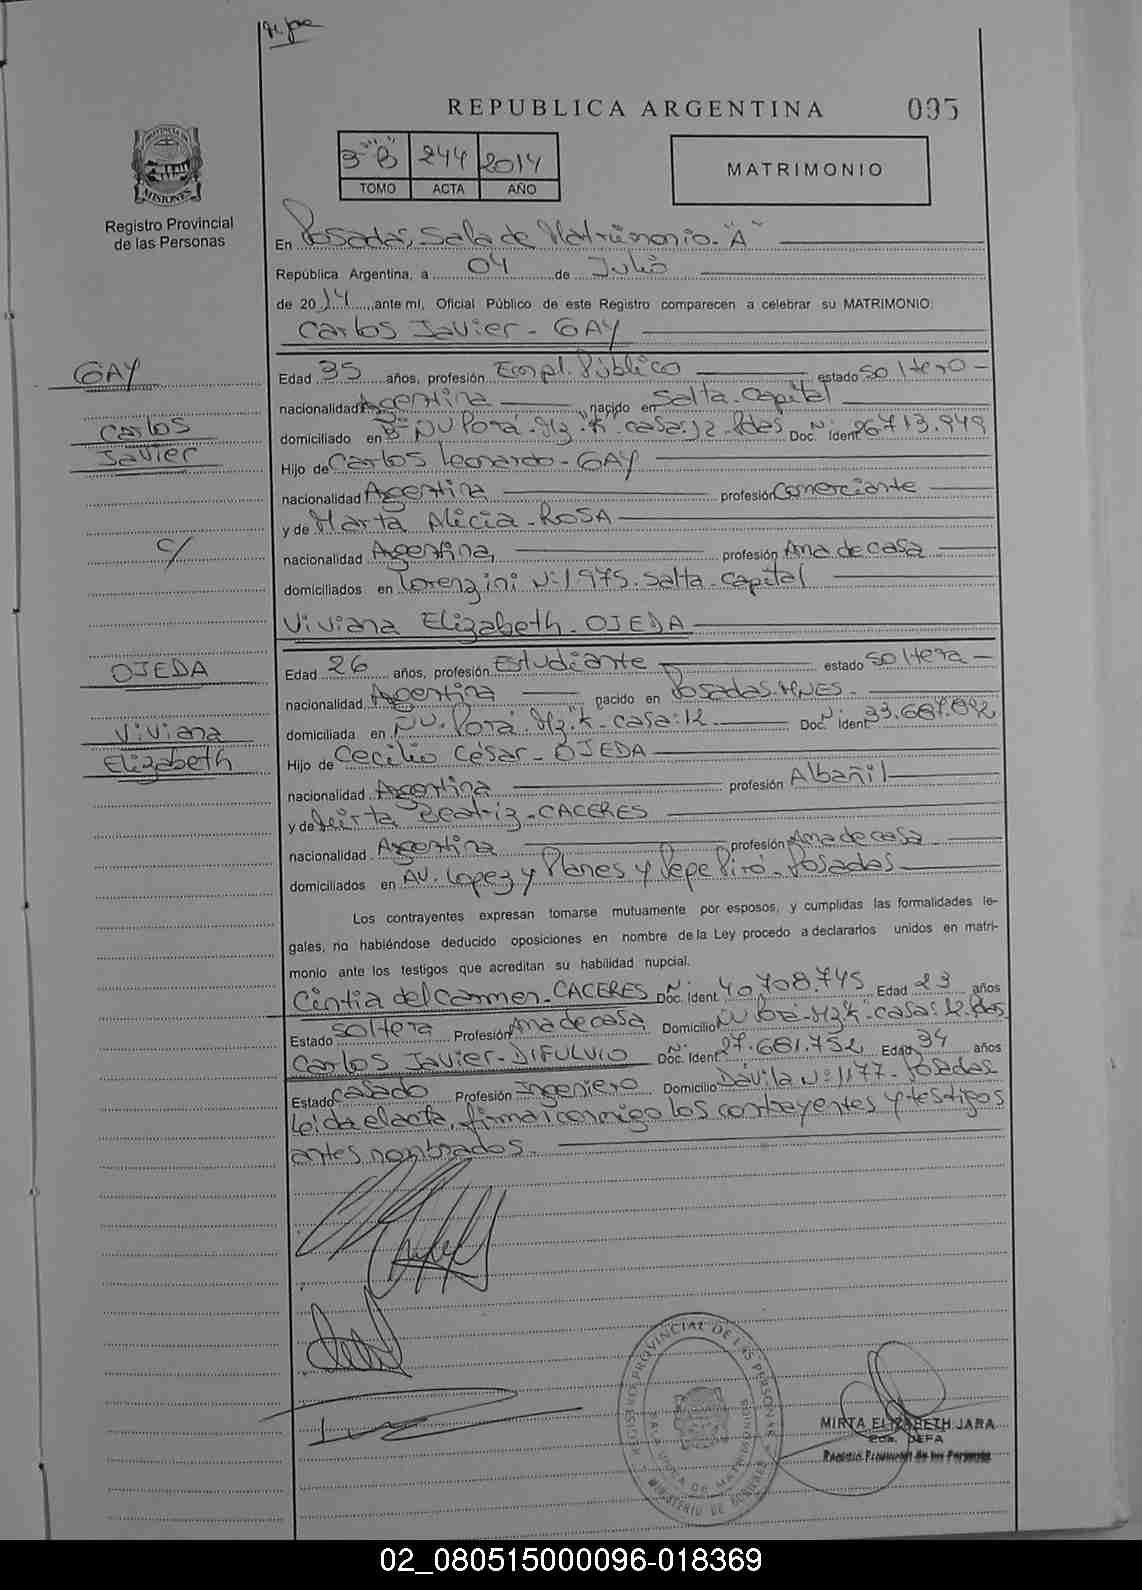 REPUBLICA ARGENTINA 095
PROVINCIA DE
MISIONES
3º "B" 244 2014
TOMO ACTA AÑO
MATRIMONIO
Registro Provincial
de las Personas
En Posadas, Sala de Matrimonio "A"
República Argentina, a 04 de Julio
de 2014, ante mí, Oficial Público de este Registro comparecen a celebrar su MATRIMONIO:
Carlos Javier - GAY
GAY
Carlos
Javier
c/
OJEDA
Viviana
Elizabeth
Edad 35 años, profesión Empl. Público estado soltero -
nacionalidad Argentina nacido en Salta. Capital
domiciliado en Bº ÑU Porá - Mz "K" - casa: 12 - Pdas Doc. Nº Ident. 26.713.949
Hijo de Carlos Leonardo - GAY
nacionalidad Argentina profesión Comerciante
y de Marta Alicia - ROSA
nacionalidad Argentina, profesión Ama de casa
domiciliados en Lorenzini Nº: 1975. Salta - Capital
Viviana Elizabeth - OJEDA
Edad 26 años, profesión Estudiante estado soltera -
nacionalidad Argentina nacido en Posadas. MNES.
domiciliada en ÑU. Porá - Mz "K" - casa: 12 Doc. Nº Ident. 33.687.892
Hijo de Cecilio César - OJEDA
nacionalidad Argentina profesión Albañil
y de Mirta Beatriz - CACERES
nacionalidad Argentina profesión Ama de casa
domiciliados en AV. Lopez y Planes y Pepe Piró - Posadas
Los contrayentes expresan tomarse mutuamente por esposos, y cumplidas las formalidades le-
gales, no habiéndose deducido oposiciones en nombre de la Ley procedo a declararlos unidos en matri-
monio ante los testigos que acreditan su habilidad nupcial.
Cintia del Carmen - CACERES Doc. Nº Ident. 40.708.745 Edad 23 años
Estado soltera Profesión Ama de casa Domicilio ÑU Porá - Mz "K" - casa: 12. Pdas
Carlos Javier - DIFULVIO Doc. Nº Ident. 27.681.752 Edad 34 años
Estado casado Profesión Ingeniero Domicilio Dávila Nº: 1177 - Posadas
Leída el acta, firman conmigo los contrayentes y testigos
antes nombrados.
REGISTRO PROVINCIAL DE LAS PERSONAS
SALA UNICA DE MATRIMONIOS
MINISTERIO DE GOBIERNO
MIRTA ELIZABETH JARA
JEFA
Registro Provincial de las Personas
02_080515000096-018369